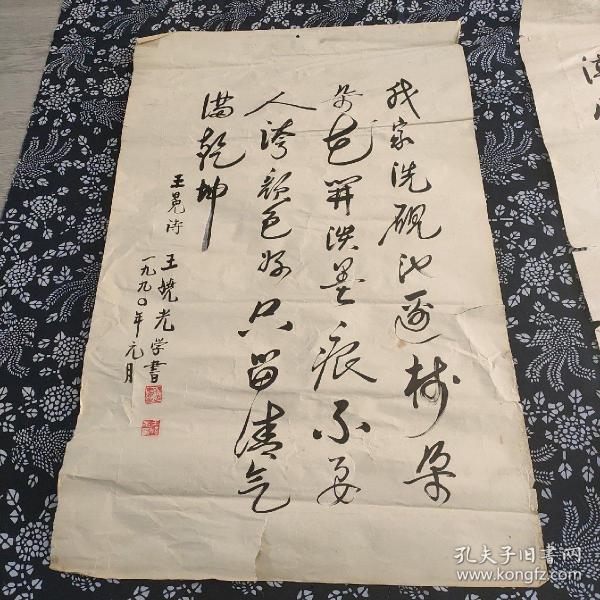 我家洗砚池边树朵
朵花开淡墨痕不要
人誇颜色好只留清气
满乾坤
王冕诗
一九九〇年元月
孔夫子旧书网
www.kongfz.com